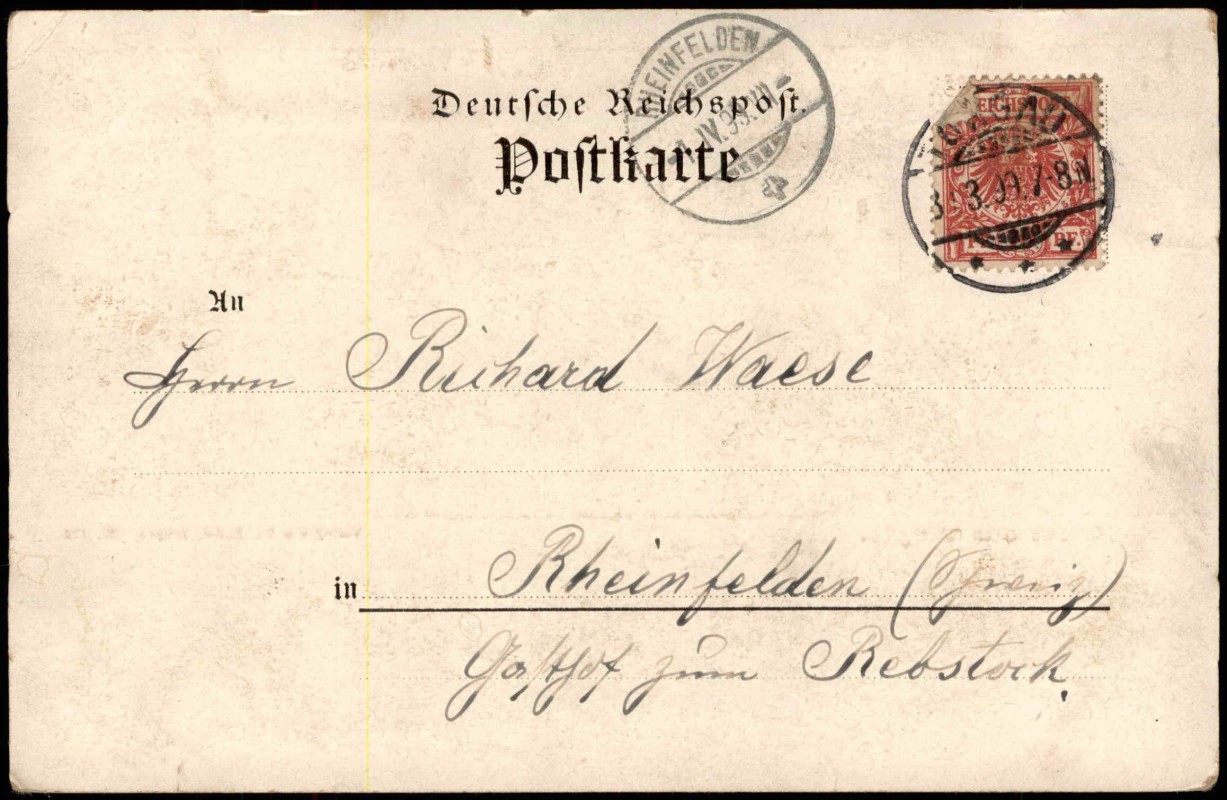 RHEINFELDEN
1. IV. 99.
Deutsche Reichspost.
Postkarte
REICHSPOST
3. 99. 7-8 N.
PF.
An
Herrn Richard Waese
in Rheinfelden (Schweiz)
Gasthof zum Rebstock.